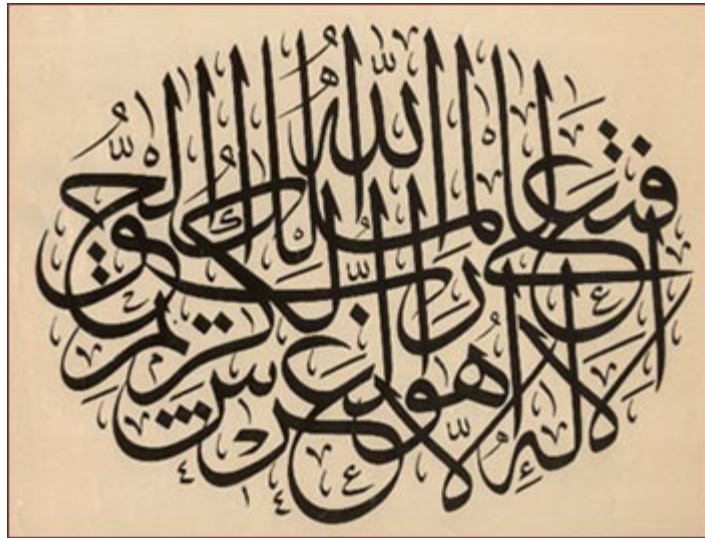 فتعالى الله الملك الحق
لا إله إلا هو رب العرش الكريم